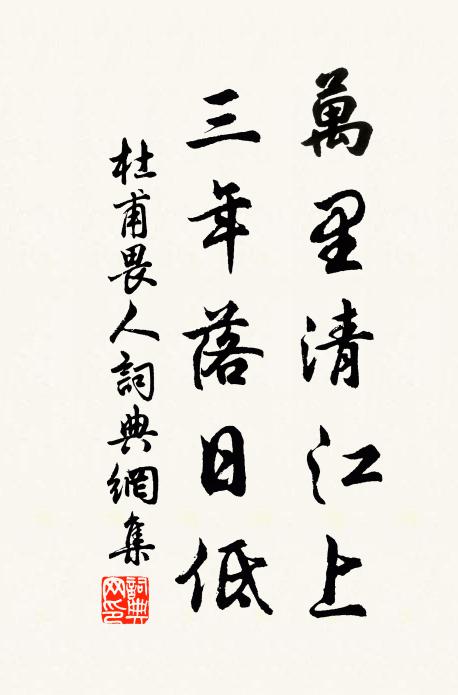 萬里清江上
三年落日低
杜甫畏人詞典網集
詞典网印